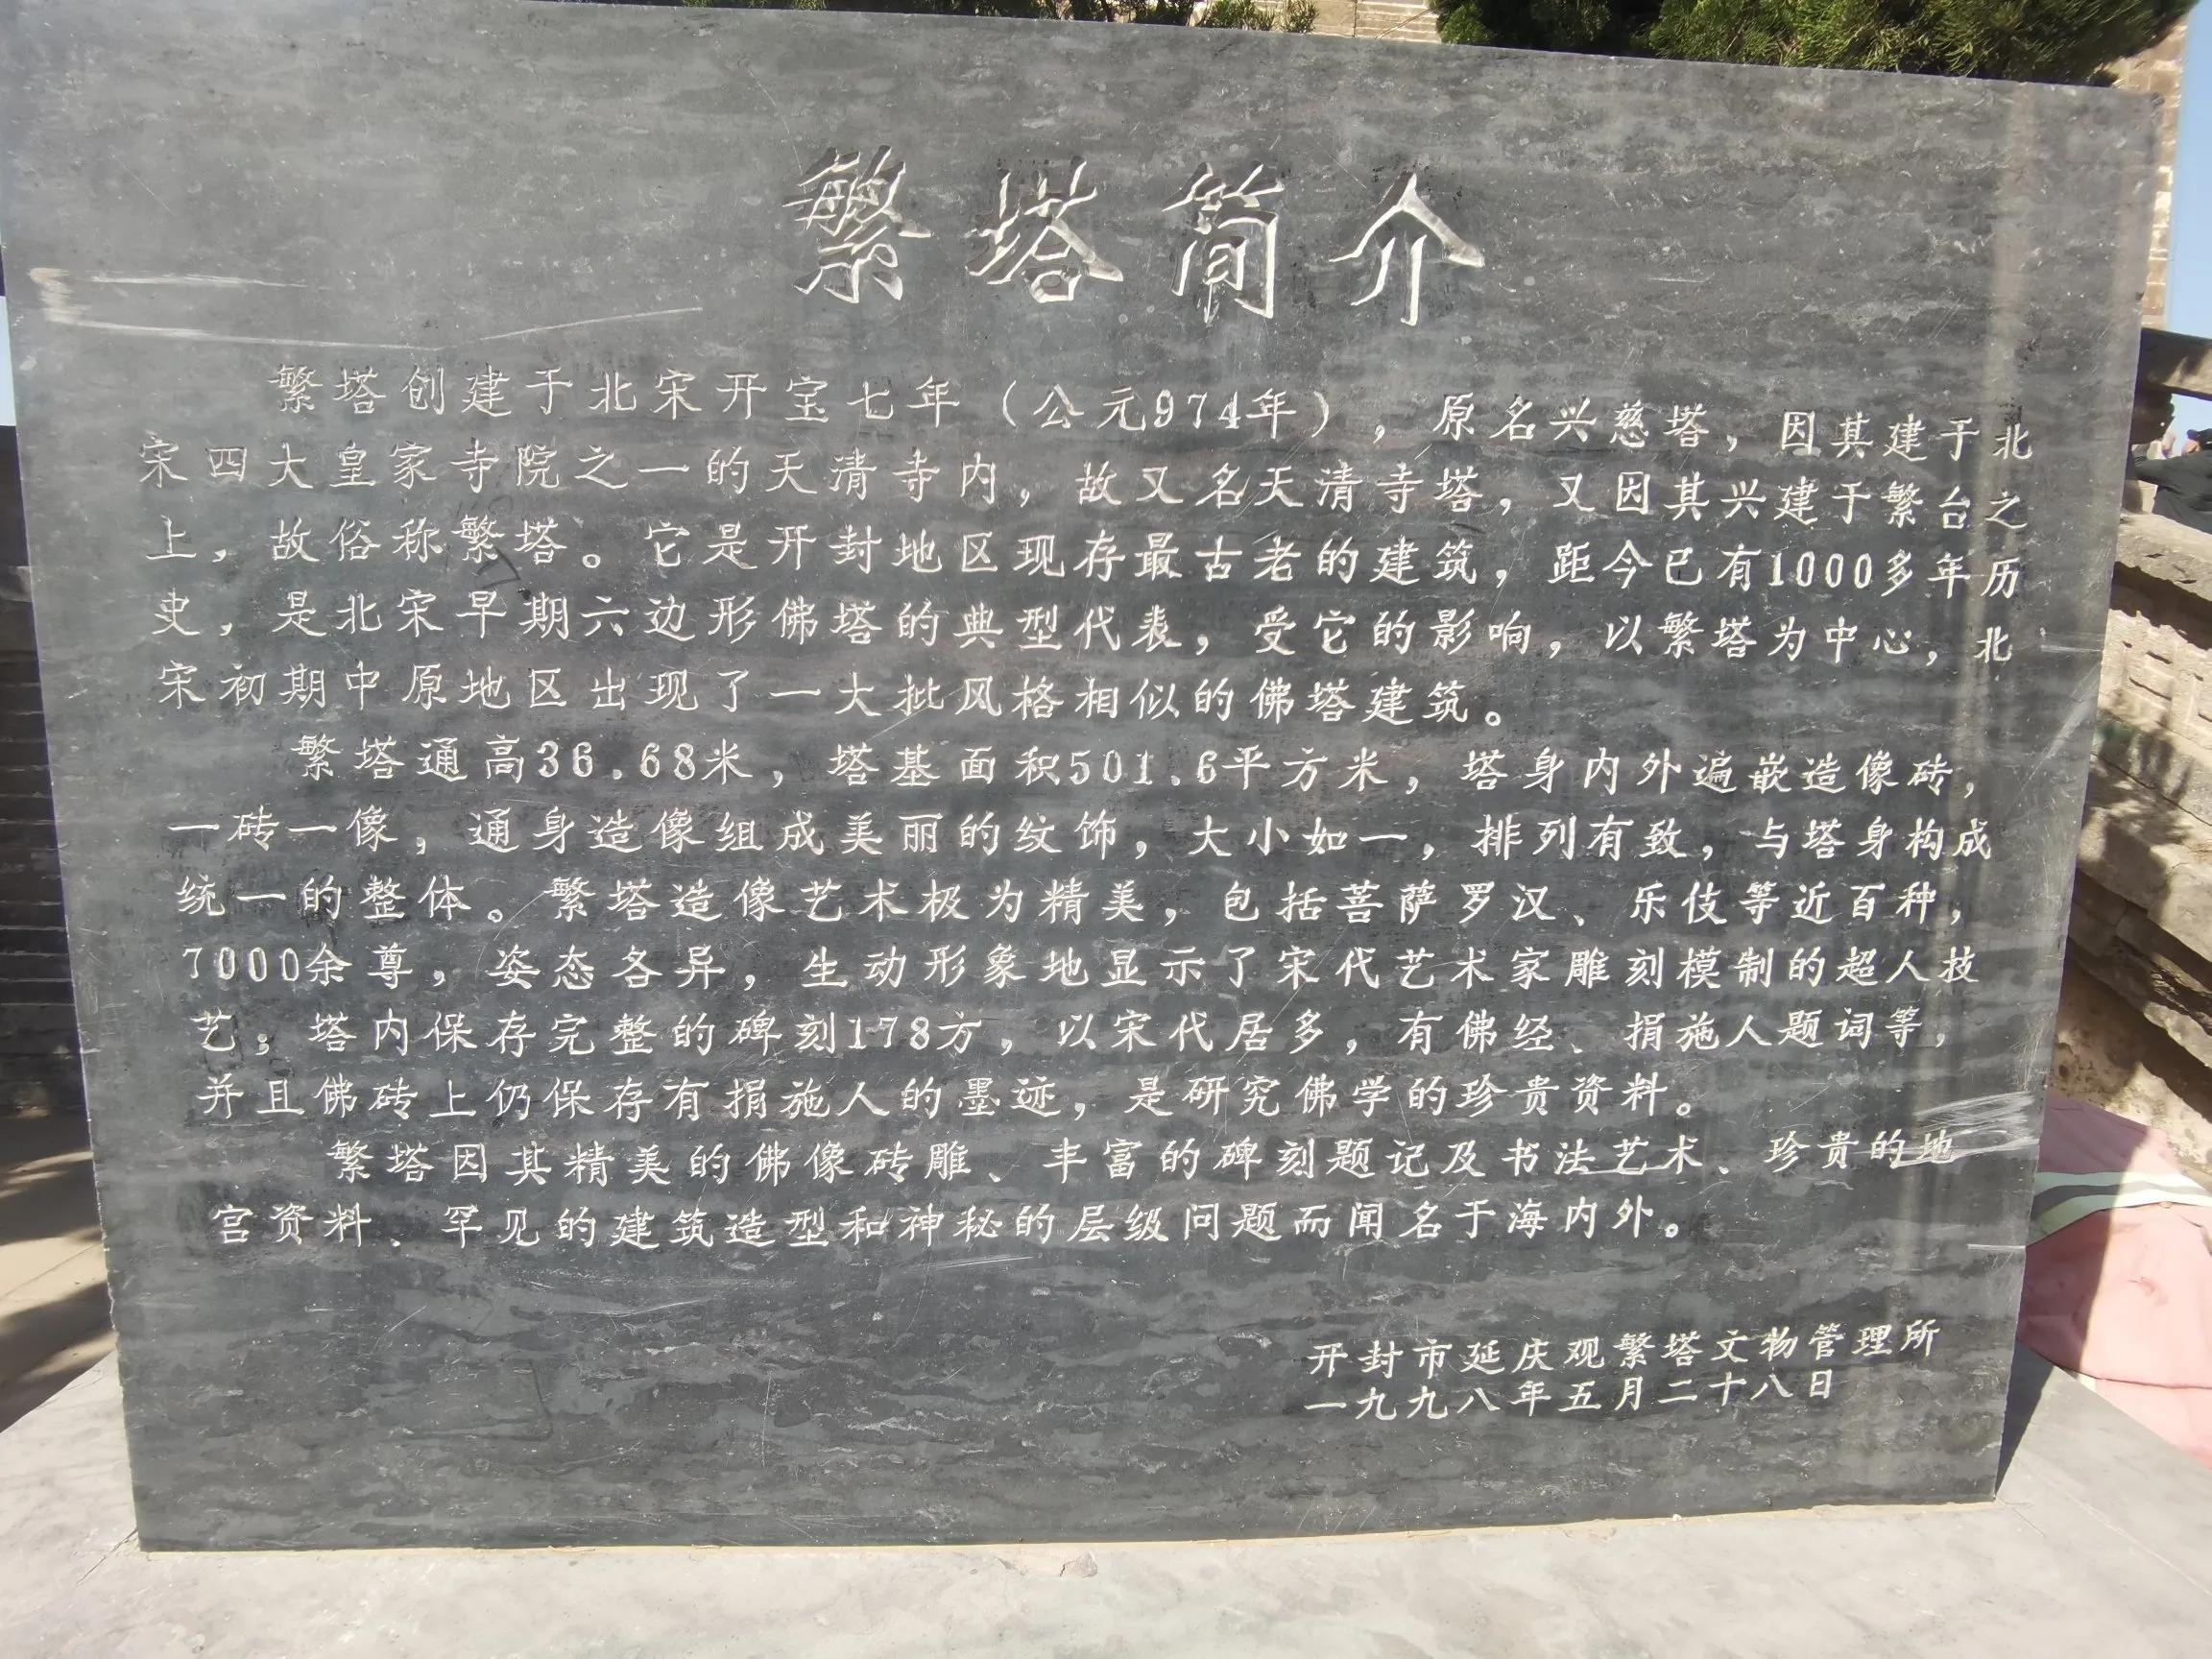 繁塔简介
繁塔创建于北宋开宝七年（公元974年），原名兴慈塔，因其建于北
宋四大皇家寺院之一的天清寺内，故又名天清寺塔，又因其兴建于繁台之
上，故俗称繁塔。它是开封地区现存最古老的建筑，距今已有1000多年历
史，是北宋早期六边形佛塔的典型代表，受它的影响，以繁塔为中心，北
宋初期中原地区出现了一大批风格相似的佛塔建筑。
繁塔通高36.68米，塔基面积501.6平方米，塔身内外遍嵌造像砖，
一砖一像，通身造像组成美丽的纹饰，大小如一，排列有致，与塔身构成
统一的整体。繁塔造像艺术极为精美，包括菩萨罗汉、乐伎等近百种，
7000余尊，姿态各异，生动形象地显示了宋代艺术家雕刻模制的超人技
艺；塔内保存完整的碑刻178方，以宋代居多，有佛经、捐施人题词等，
并且佛砖上仍保存有捐施人的墨迹，是研究佛学的珍贵资料。
繁塔因其精美的佛像砖雕、丰富的碑刻题记及书法艺术、珍贵的地
宫资料、罕见的建筑造型和神秘的层级问题而闻名于海内外。
开封市延庆观繁塔文物管理所
一九九八年五月二十八日